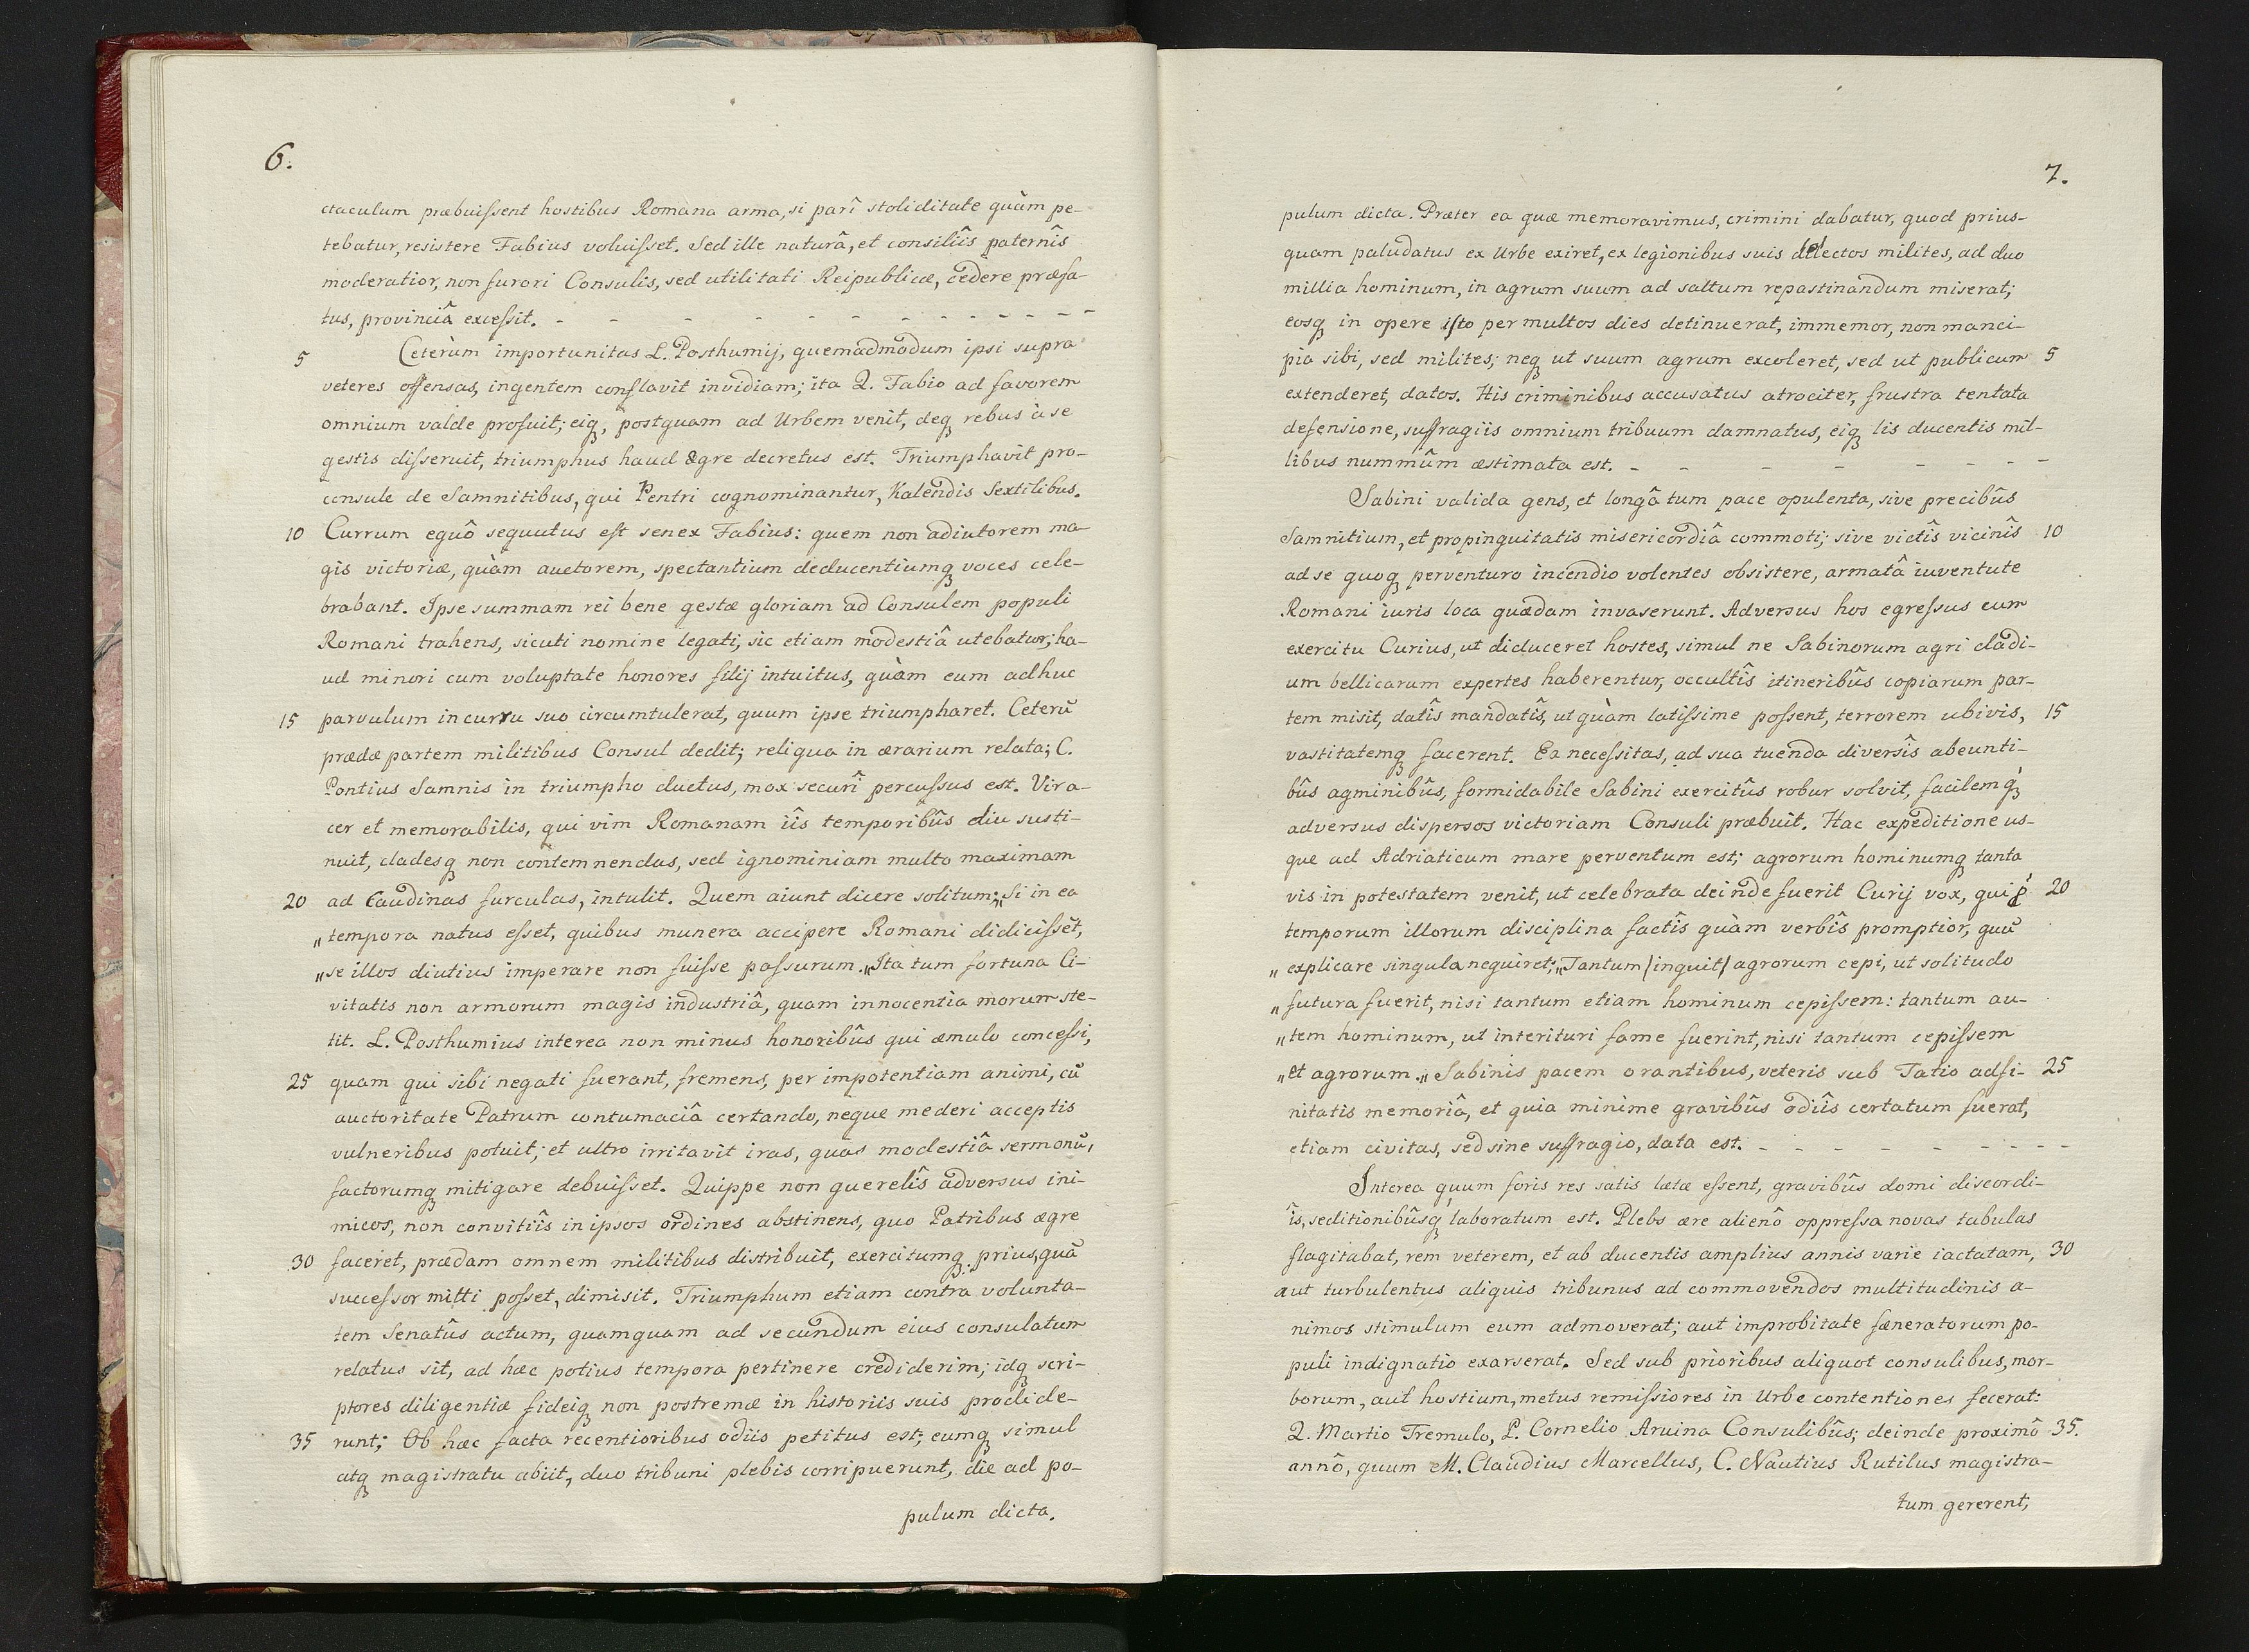 6.
ctaculum præbuissent hostibus Romana arma, si parî stoliditate quàm pe-
tebatur, resistere Fabius voluisset. Sed ille naturâ, et consiliîs paternîs
moderatior, non furori Consulis, sed utilitati Reipublicæ, cedere præfa-
tus, provinciâ excessit. - - - - - - - - - - - -
5 Ceterùm importunitas L. Posthumij, quemadmodum ipsi supra
veteres offensas, ingentem conflavit invidiam; ita Q. Fabio ad favorem
omnium valde profuit; eiq, postquam ad Urbem venit, deq rebus à se
gestis disseruit, triumphus haud ægre decretus est. Triumphavit pro-
consule de Samnitibus, qui Pentri cognominantur, Kalendis Sextilibus.
10 Currum equô sequutus est senex Fabius: quem non adiutorem ma-
gis victoriæ, quàm auctorem, spectantium deducentiumq voces cele-
brabant. Ipse summam rei bene gestæ gloriam ad Consulem populi
Romani trahens, sicuti nomine legati, sic etiam modestiâ utebatur; ha-
ud minori cum voluptate honores filij intuitus, quàm eum adhuc
15 parvulum in curru suo circumtulerat, quum ipse triumpharet. Ceterū
prædæ partem militibus Consul dedit; reliqua in ærarium relata; C.
Pontius Samnis in triumpho ductus, mox securî percussus est. Vir a-
cer et memorabilis, qui vim Romanam iîs temporibûs diu susti-
nuit, cladesq non contemnendas, sed ignominiam multo maximam
20 ad Caudinas furculas, intulit. Quem aiunt dicere solitum: „Si in ea
„tempora natus esset, quibus munera accipere Romani didicissēt,
„se illos diutius imperare non fuisse passurum.„ Ita tum fortuna Ci-
vitatis non armorum magis industriâ, quam innocentia morum ste-
tit. L. Posthumius interea non minus honoribûs qui æmulo concessi,
25 quam qui sibi negati fuerant, fremens, per impotentiam animi, cū
auctoritate Patrum contumaciâ certando, neque mederi acceptis
vulneribus potuit; et ultro irritavit iras, quas modestiâ sermonū,
factorumq mitigare debuisset. Quippe non querelîs adversus ini-
micos, non convitiîs in ipsos ordines abstinens, quo Patribus ægre
30 faceret, prædam omnem militibus distribuit, exercitumq prius, quā
successor mitti posset, dimisit. Triumphum etiam contra volunta-
tem Senatûs actum, quamquam ad secundum eius consulatum
relatus sit, ad hæc potius tempora pertinere crediderim; idq scri-
ptores diligentiæ fideiq non postremæ in historiis suis prodide-
35 runt; Ob hæc facta recentioribus odiis petitus est; eumq simul
atq magistratu abiit, duo tribuni plebis corripuerunt, die ad po-
pulum dicta.
7.
pulum dicta. Præter ea quæ memoravimus, crimini dabatur, quod prius-
quam paludatus ex Urbe exiret, ex legionibus suis delectos milites, ad duo
millia hominum, in agrum suum ad saltum repastinandum miserat;
eosq in opere isto per multos dies detinuerat, immemor, non manci-
pia sibi, sed milites; neq ut suum agrum excoleret, sed ut publicum 5
extenderet, datos. His criminibus accusatus atrociter, frustra tentata
defensione, suffragiis omnium tribuum damnatus, eiq lis ducentis mil-
libus nummûm æstimata est. - - - - - - - -
Sabini valida gens, et longâ tum pace opulenta, sive precibûs
Samnitium, et propinquitatis misericordiâ commoti; sive victîs vicinîs 10
ad se quoq perventuro incendio volentes obsistere, armatâ iuventute
Romani iuris loca quædam invaserunt. Adversus hos egressus cum
exercitu Curius, ut diduceret hostes, simul ne Sabinorum agri cladi-
um bellicarum expertes haberentur, occultîs itineribûs copiarum par-
tem misit, datîs mandatîs, ut quàm latissime possent, terrorem ubivis, 15
vastitatemq facerent. Ea necessitas, ad sua tuenda diversîs abeunti-
bûs agminibûs, formidabile Sabini exercitûs robur solvit, facilemq
adversus dispersos victoriam Consuli præbuit. Hac expeditione us-
que ad Adriaticum mare perventum est; agrorum hominumq tanta
vis in potestatem venit, ut celebrata deinde fuerit Curij vox, qui ꝑ 20
temporum illorum disciplina factîs quàm verbîs promptior, quū
„explicare singula nequiret; „Tantum (inquit) agrorum cepi, ut solitudo
„futura fuerit, nisi tantum etiam hominum cepissem: tantum au-
„tem hominum, ut interituri fame fuerint, nisi tantum cepissem
„et agrorum.„ Sabinis pacem orantibus, veteris sub Tatio adfi- 25
nitatis memoriâ, et quia minime gravibûs odiîs certatum fuerat,
etiam civitas, sed sine suffragio, data est. - - - - - - - -
Interea quum foris res satis lætæ essent, gravibûs domi discordi-
îs, seditionibûsq laboratum est. Plebs ære alienô oppressa novas tabulas
flagitabat, rem veterem, et ab ducentis amplius annis varie iactatam, 30
aut turbulentus aliquis tribunus ad commovendos multitudinis a-
nimos stimulum eum admoverat; aut improbitate fæneratorum po-
puli indignatio exarserat. Sed sub prioribus aliquot consulibus, mor-
borum, aut hostium, metus remissiores in Urbe contentiones fecerat:
Q. Martio Tremulo, P. Cornelio Aruina Consulibûs; deinde proximô 35.
annô, quum M. Claudius Marcellus, C. Nautius Rutilus magistra-
tum gererent;